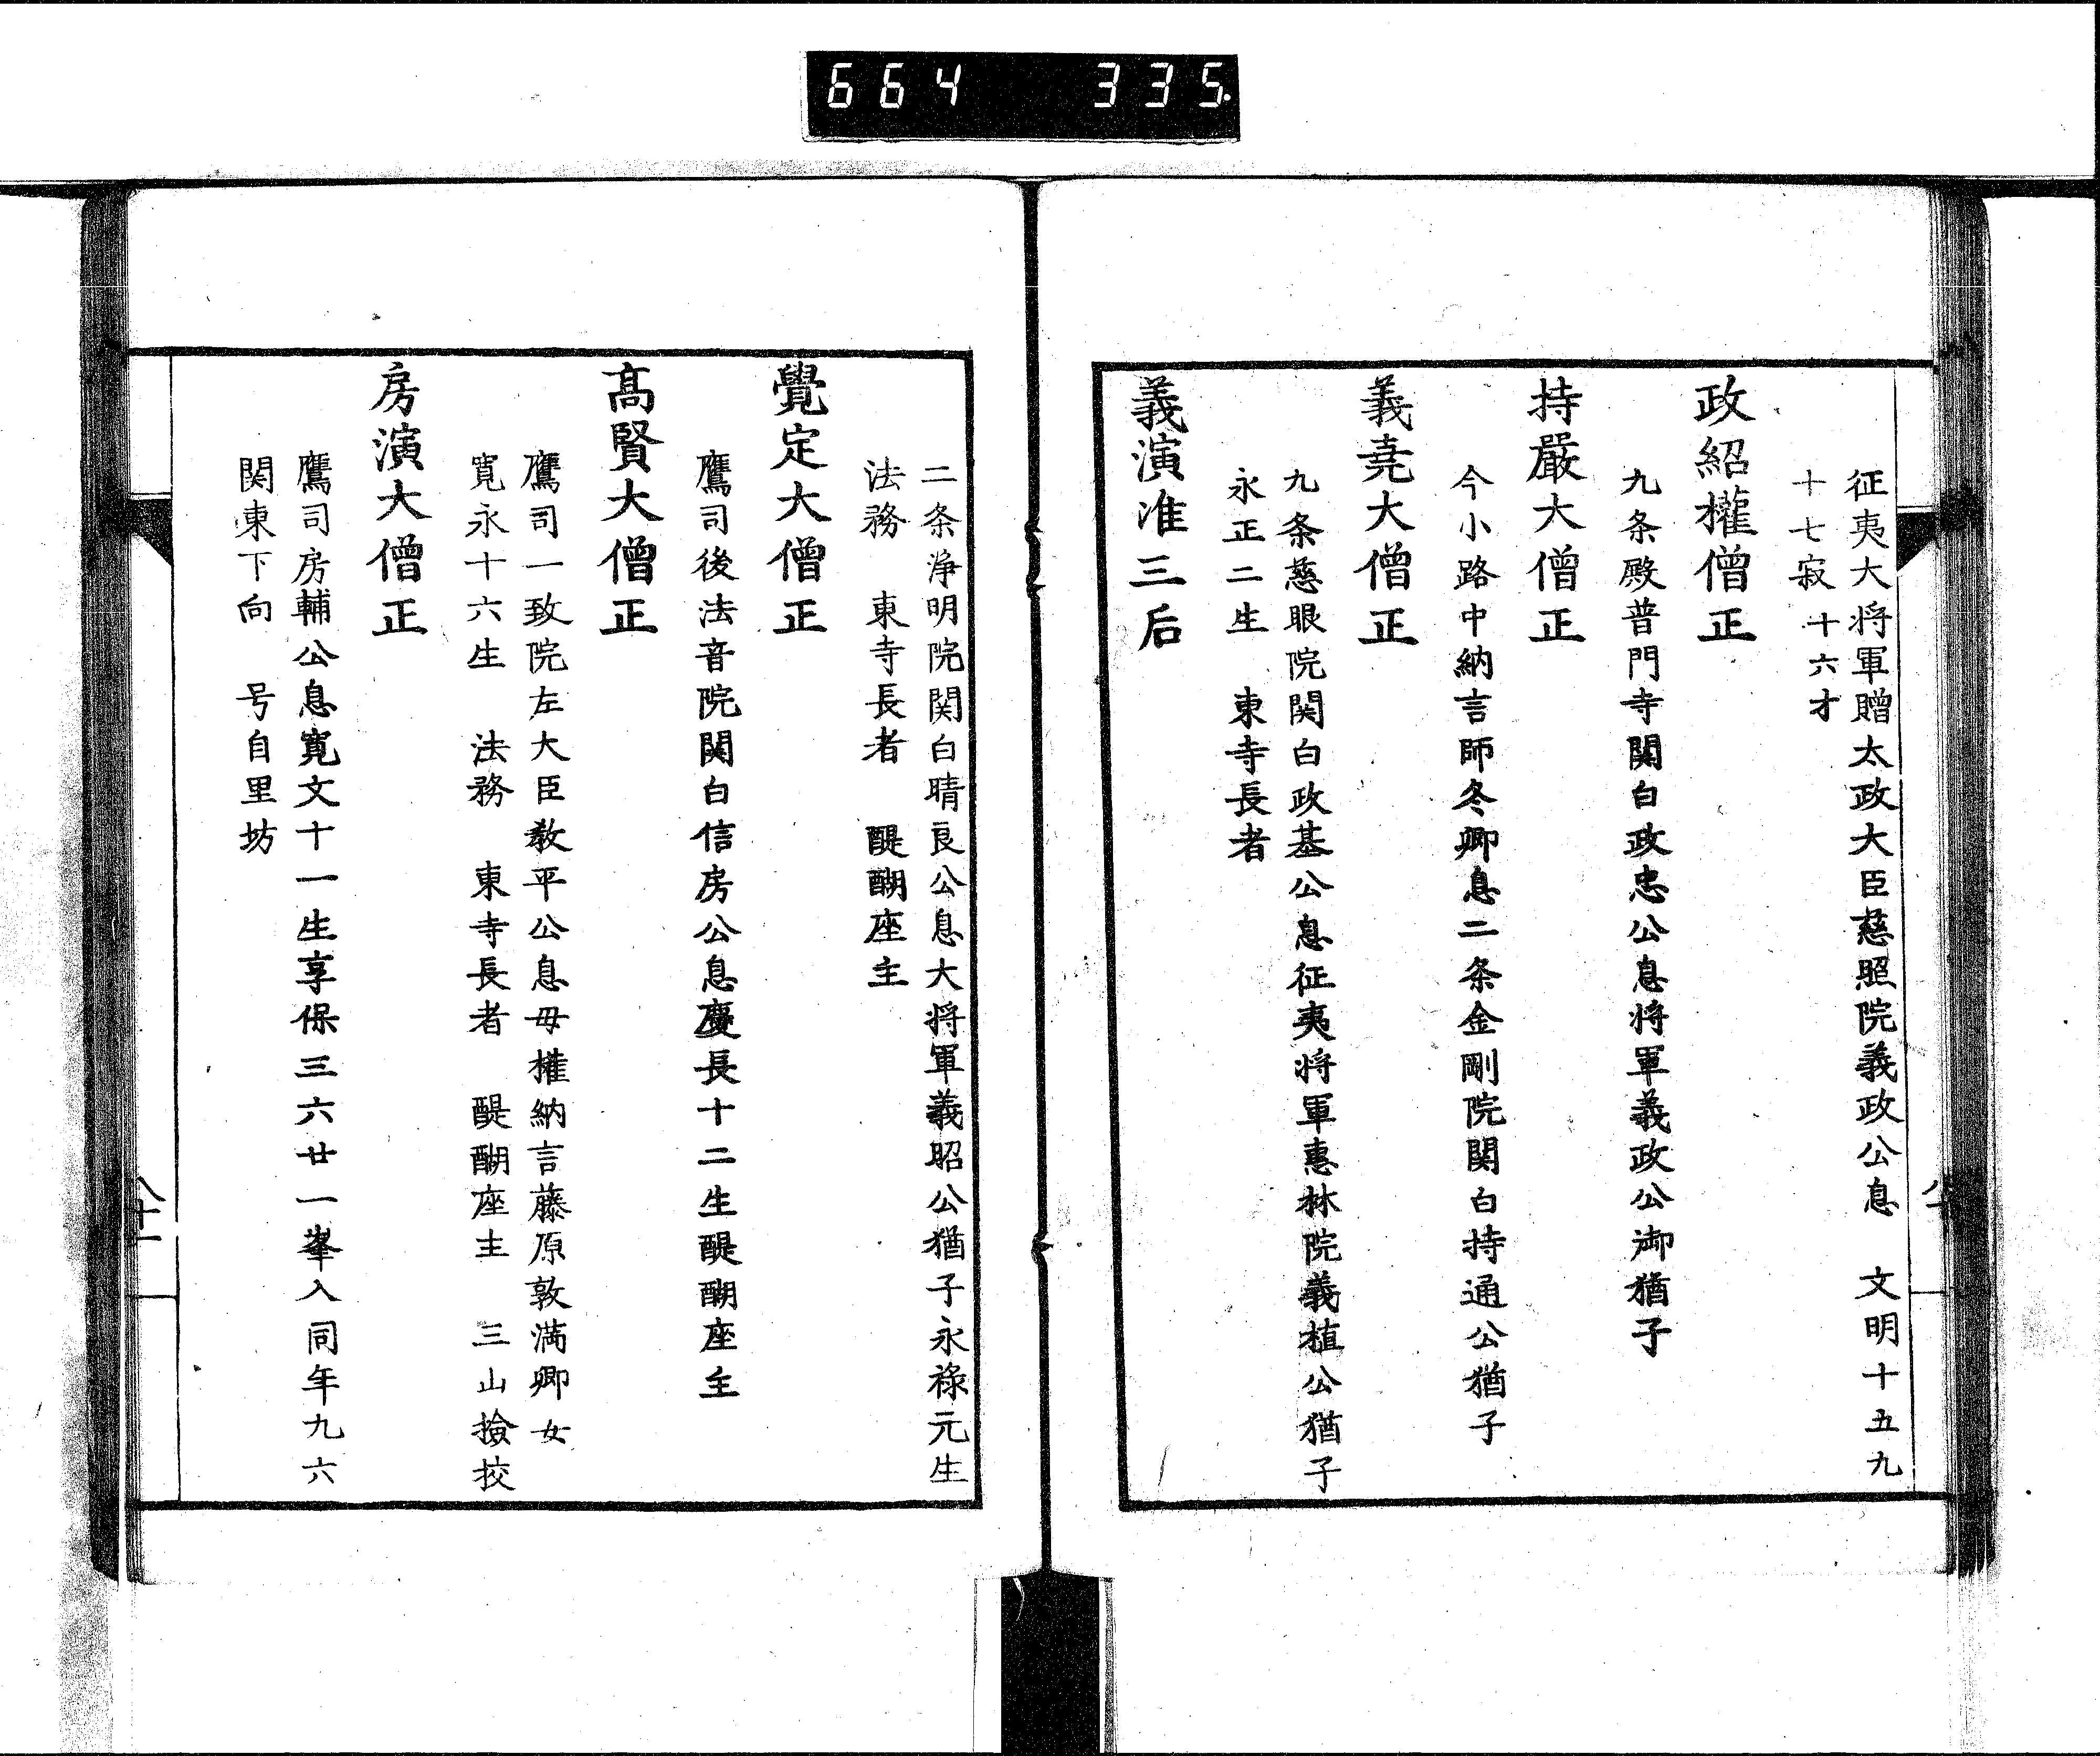 664 335.
征夷大将軍贈太政大臣慈照院義政公息 文明十五九
十七寂 十六才
政紹權僧正
九条殿普門寺関白政忠公息将軍義政公御猶子
持嚴大僧正
今小路中納言師冬卿息二条金剛院関白持通公猶子
義堯大僧正
九条慈眼院関白政基公息征夷将軍惠林院義植公猶子
永正二生 東寺長者
義演准三后
二条淨明院関白晴良公息大将軍義昭公猶子永祿元生
法務 東寺長者 醍醐座主
覺定大僧正
鷹司後法音院関白信房公息慶長十二生醍醐座主
髙賢大僧正
鷹司一致院左大臣教平公息母権納言藤原敦満卿女
寛永十六生 法務 東寺長者 醍醐座主 三山撿挍
房演大僧正
鷹司房輔公息寛文十一生享保三六廿一峯入同年九六
関東下向 号自里坊